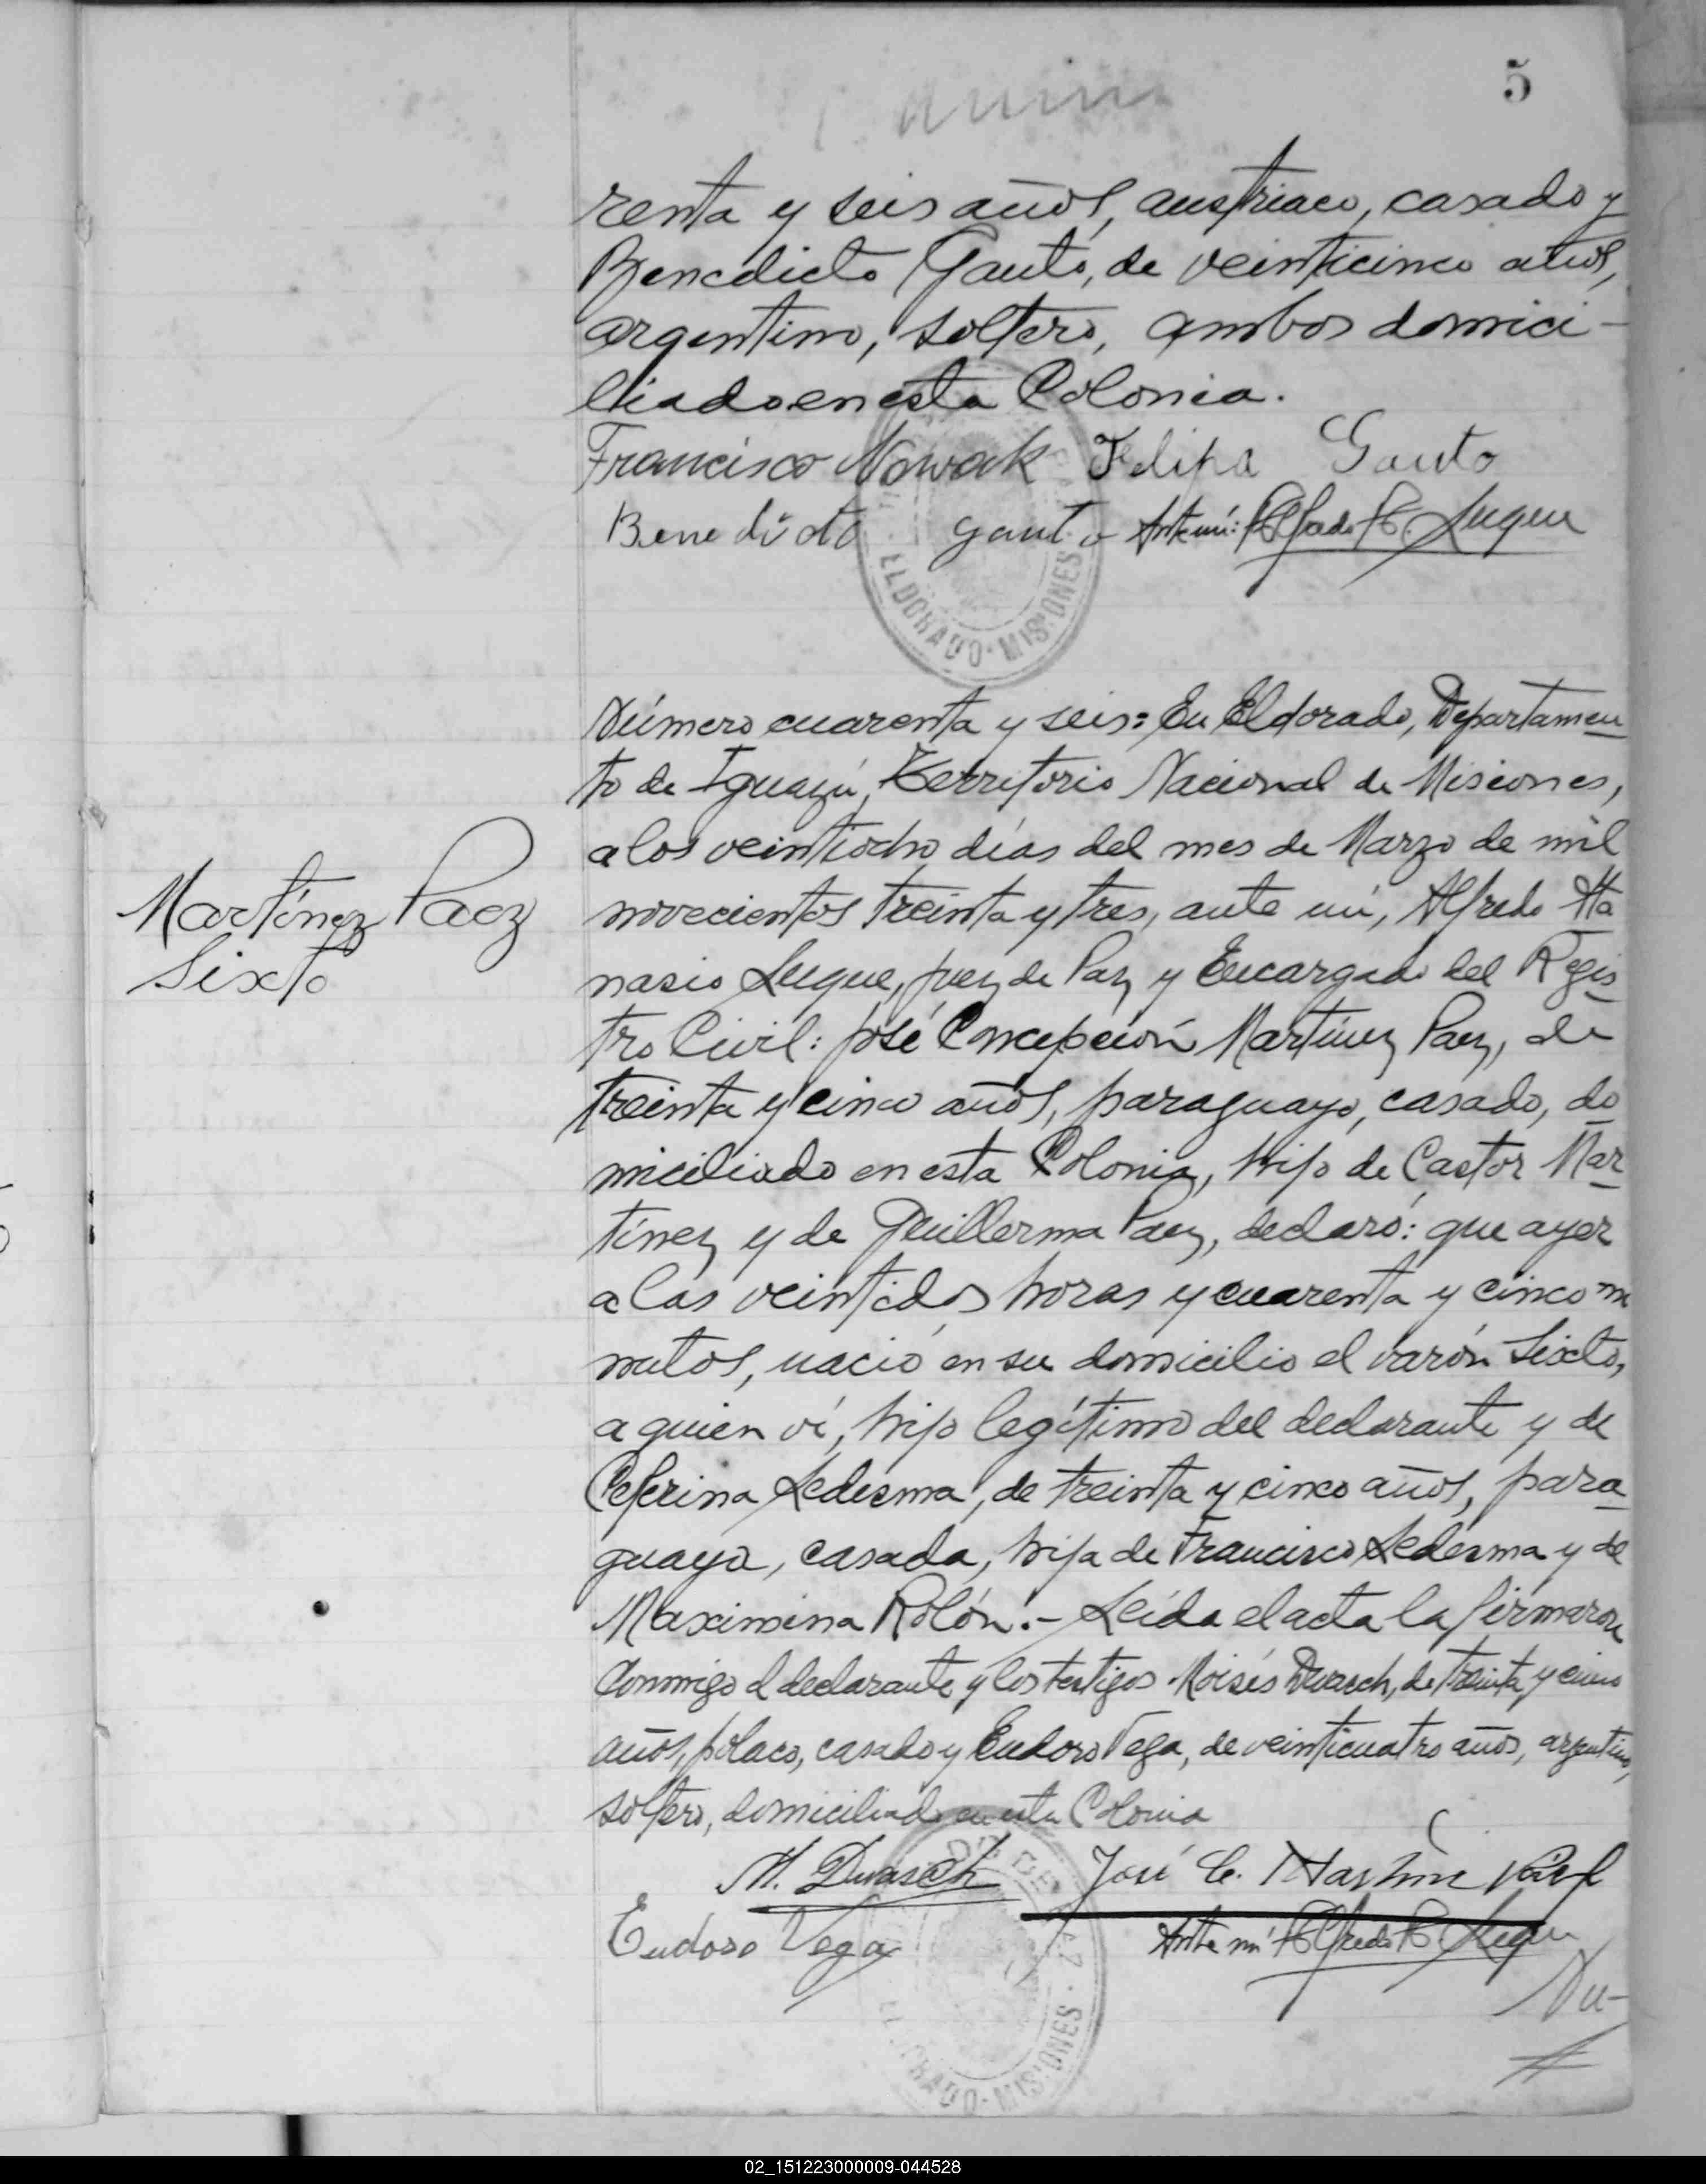 5
renta y seis años, austriaco, casado y
Benedicto Gauto, de veinticinco años,
argentino, soltero, ambos domici-
liados en esta Colonia.
Francisco Nowak Felipa Gauto
Benedicto Gauto Ante mí: Alfredo A. Luque
ELDORADO · MISIONES
Número cuarenta y seis: En Eldorado, Departamen
to de Iguazú, Territorio Nacional de Misiones,
a los veintiocho días del mes de Marzo de mil
novecientos treinta y tres, ante mí, Alfredo Ata
nasio Luque, Juez de Paz y Encargado del Regis
tro Civil: José Concepción Martínez Paez, de
treinta y cinco años, paraguayo, casado, do
miciliado en esta Colonia, hijo de Castor Mar
tínez y de Guillerma Paez, declaró: que ayer
a las veintidos horas y cuarenta y cinco mi
nutos, nació en su domicilio el varón Sixto,
a quien ví, hijo legítimo del declarante y de
Ceferina Ledesma, de treinta y cinco años, para
guaya, casada, hija de Francisco Ledesma y de
Maximina Rolón.- Leída el acta la firmaron
conmigo el declarante y los testigos Moisés Dwasch, de treinta y cinco
años, polaco, casado y Eudoro Vega, de veinticuatro años, argentino,
soltero, domiciliados en esta Colonia
Martínez Paez
Sixto
M. Dwasch José C. Martínez Páez
Eudoro Vega Ante mí Alfredo A. Luque
ELDORADO · MISIONES
Nú-
02_151223000009-044528